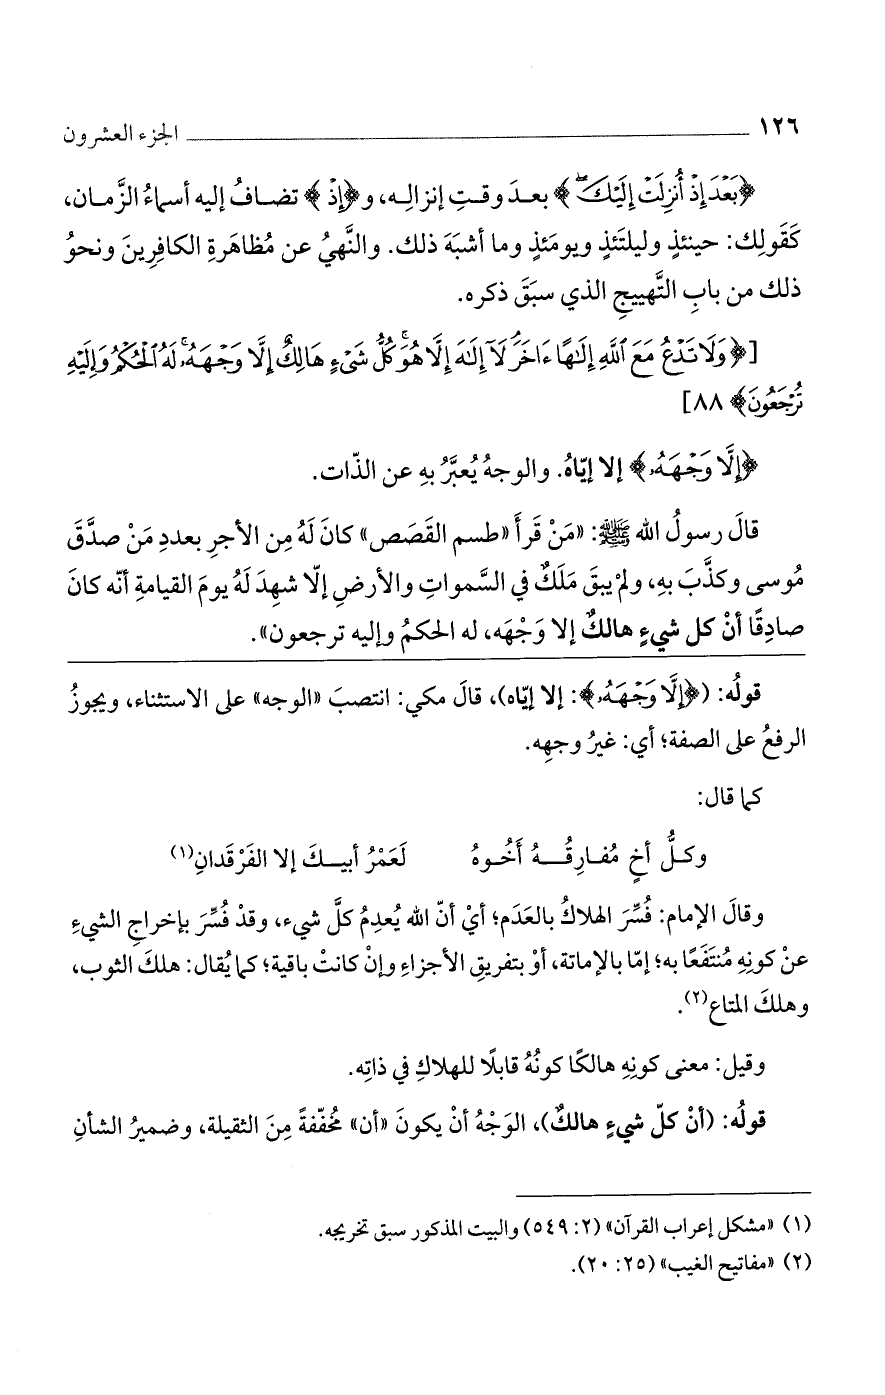 ١٢٦ ــــــــــــــــــــــ الجزء العشرون
﴿بَعْدَ إِذْ أُنزِلَتْ إِلَيْكَ﴾ بعدَ وقتِ إنزالِه، و﴿إِذْ﴾ تضافُ إليه أسماءُ الزَّمان،
كَقَولِك: حينئذٍ وليلتَئذٍ ويومَئذٍ وما أشبَهَ ذلك. والنَّهيُ عن مُظاهَرةِ الكافِرينَ ونحوُ
ذلك من بابِ التَّهييجِ الذي سبَقَ ذكره.
[﴿وَلَا تَدْعُ مَعَ ٱللَّهِ إِلَٰهًا ءَاخَرَ ۘ لَآ إِلَٰهَ إِلَّا هُوَ ۚ كُلُّ شَىْءٍ هَالِكٌ إِلَّا وَجْهَهُۥ ۚ لَهُ ٱلْحُكْمُ وَإِلَيْهِ
تُرْجَعُونَ﴾ ٨٨]
﴿إِلَّا وَجْهَهُۥ﴾ إلا إيّاهُ. والوجهُ يُعبَّرُ بهِ عن الذّات.
قالَ رسولُ الله ﷺ: «مَنْ قَرأَ «طسم القَصَص» كانَ لَهُ مِن الأجرِ بعددِ مَنْ صدَّقَ
مُوسى وكذَّبَ بهِ، ولمْ يبقَ مَلَكٌ في السَّمواتِ والأرضِ إلّا شهِدَ لَهُ يومَ القيامةِ أنّه كانَ
صادِقًا أنْ كل شيءٍ هالكٌ إلا وَجْهَه، له الحكمُ وإليه ترجعون».
قولُه: (﴿إِلَّا وَجْهَهُۥ﴾: إلا إيّاه)، قالَ مكي: انتصبَ «الوجه» على الاستثناء، ويجوزُ
الرفعُ على الصفة؛ أي: غيرُ وجهِه.
كما قال:
وكلُّ أخٍ مُفارِقُهُ أَخُوهُ لَعَمْرُ أبيكَ إلا الفَرْقدانِ(١)
وقالَ الإمام: فُسِّرَ الهلاكُ بالعَدَم؛ أيْ أنّ الله يُعدِمُ كلَّ شيء، وقدْ فُسِّرَ بإخراجِ الشيءِ
عنْ كونِهِ مُنتَفَعًا به؛ إمّا بالإماتة، أوْ بتفريقِ الأجزاءِ وإنْ كانتْ باقية؛ كما يُقال: هلكَ الثوب،
وهلكَ المتاع(٢).
وقيل: معنى كونِهِ هالكًا كونُهُ قابلًا للهلاكِ في ذاتِه.
قولُه: (أنْ كلّ شيءٍ هالكٌ)، الوَجْهُ أنْ يكونَ «أن» مُخفّفةً مِنَ الثقيلة، وضميرُ الشأنِ
(١) «مشكل إعراب القرآن» (٢: ٥٤٩) والبيت المذكور سبق تخريجه.
(٢) «مفاتيح الغيب» (٢٥: ٢٠).